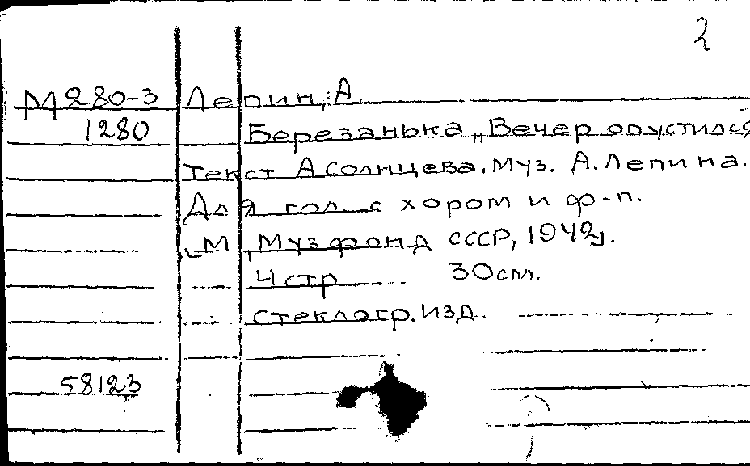 2
М280-3 Лепин, А
1280 Березанька „Вечер опустился
Текст А Солнцева. Муз. А. Лепина.
Для гол. с хором и ф-п.
М, Музфонд СССР, 1942г.
4 стр 30 см.
стеклогр. изд.
58123